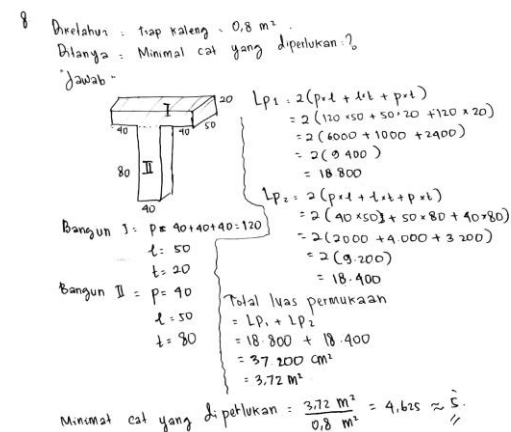 8
Diketahui : tiap kaleng = 0,8 m²
Ditanya : Minimal cat yang diperlukan ?
Jawab
I
20
40
40
50
80
II
40
Bangun I : p = 40+40+40=120
l = 50
t = 20
Bangun II = p= 40
l = 50
t = 80
Lp1 = 2(p×l + l×t + p×t)
= 2 (120 ×50 + 50×20 +120 × 20)
= 2 (6000 + 1000 + 2400)
= 2(9 400)
= 18 800
Lp2 = 2(p×l + l×t + p×t)
= 2 ( 40 ×50) + 50 × 80 + 40×80)
= 2(2000 + 4.000 + 3 200)
= 2 (9.200)
= 18.400
Total luas permukaan
= LP1 + LP2
= 18.800 + 18.400
= 37.200 cm²
= 3,72 m²
Minimal cat yang diperlukan = 3,72 m² / 0,8 m² = 4,625 ≈ 5.